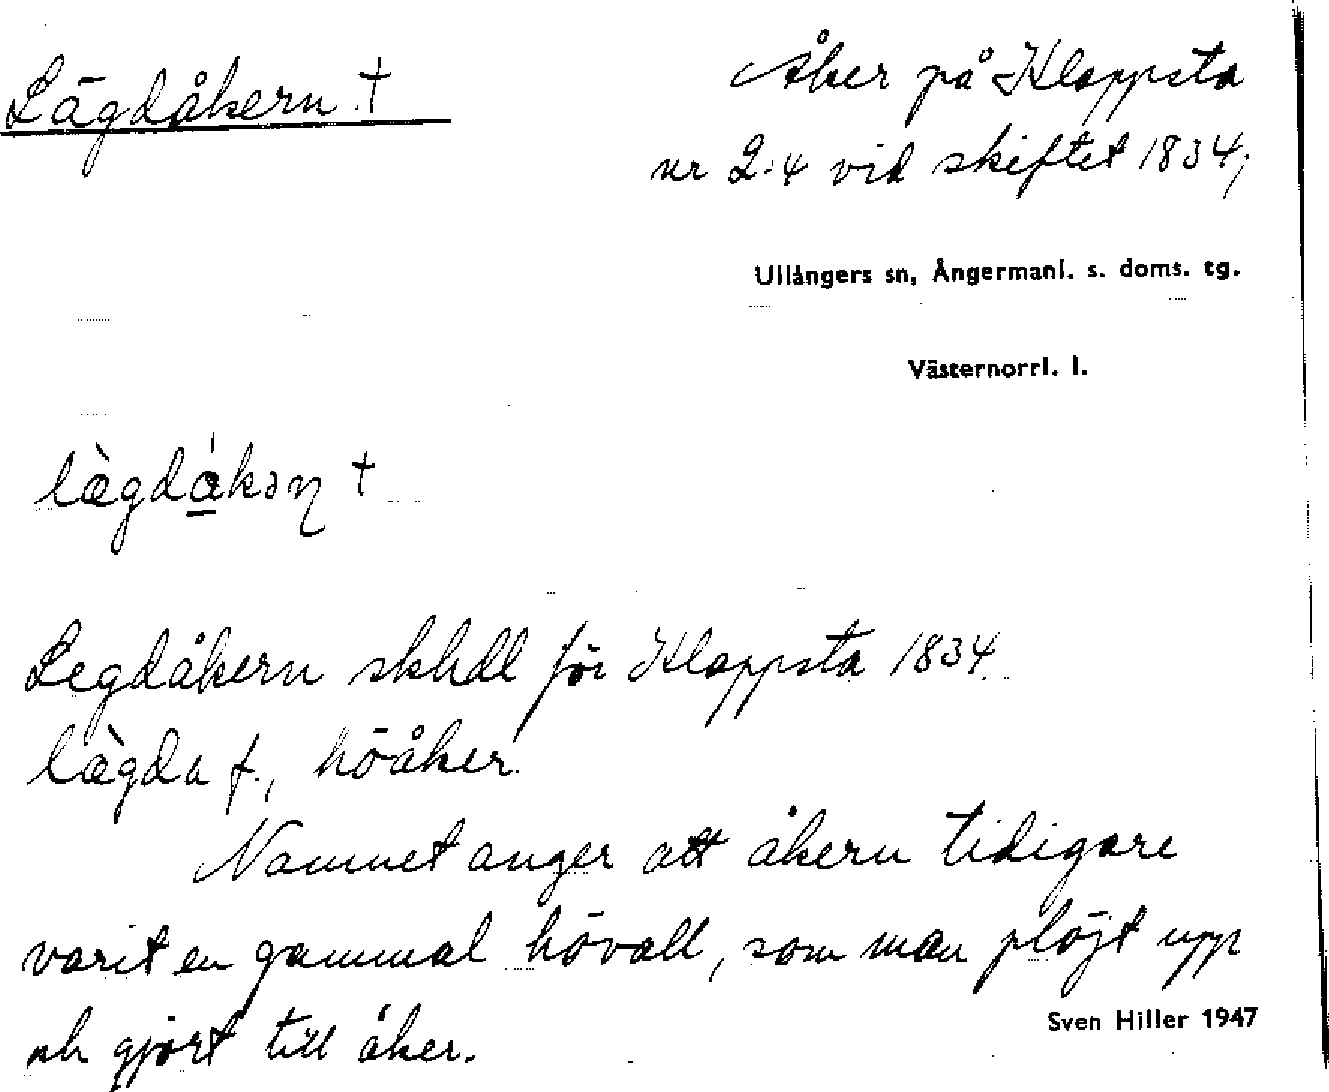 Lägdåkern †
Åker på Kloppsta
nr 2:4 vid skiftet 1834;
Ullångers sn, Ångermanl. s. doms. tg.
Västernorrl. l.
lægdåkəɳ †
Legdåkern skhdl för Kloppsta 1834.
lægda f., höåker
Namnet anger att åkern tidigare
varit en gammal hövall, som man plöjt upp
och gjort till åker.
Sven Hiller 1947